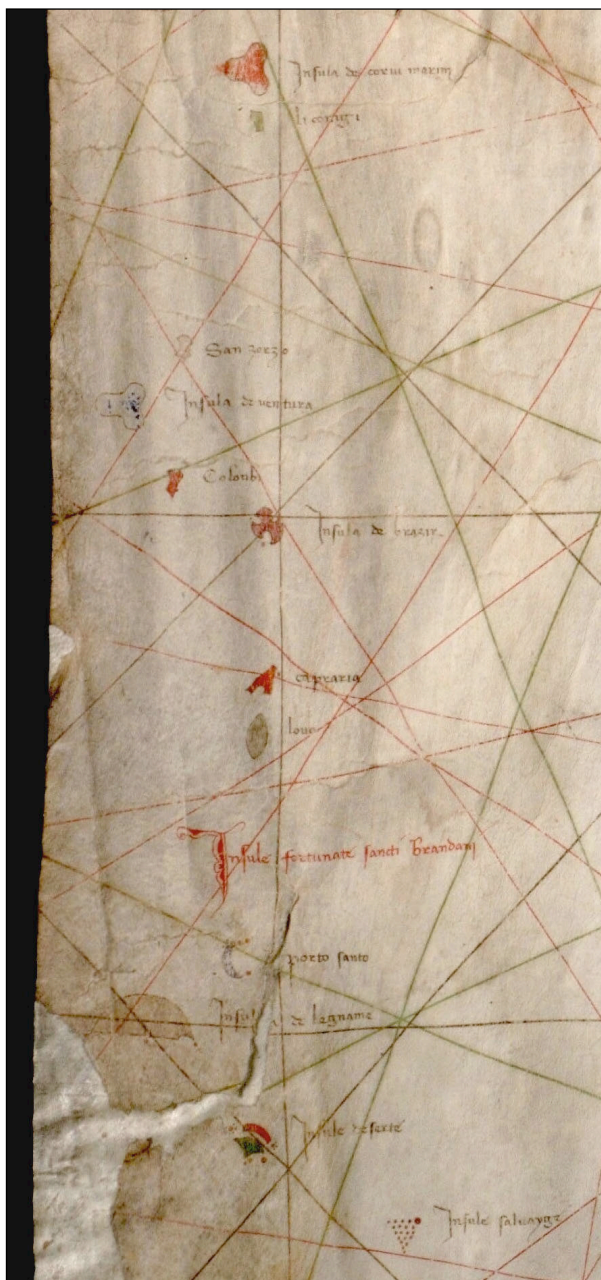 Insula de corui marini
li conigi
San zorzo
Insula de ventura
Colonbi
Insula de brazir
capraria
louo
Insule fortunate sancti Brandani
porto santo
Insula de legname
Insule deserte
Insule saluayge